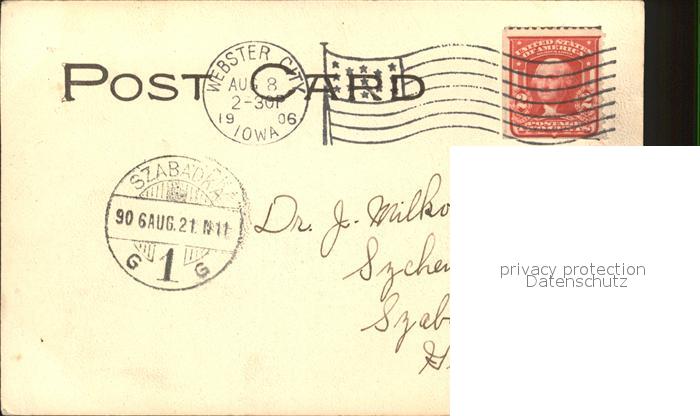 POST CARD
WEBSTER CITY
AUG 8
2-30P
19 06
IOWA
UNITED STATES
OF AMERICA
POSTAGE
SZABADKA
906 AUG. 21. N11
G 1 G
Dr. J. Milko
Szche
Szab
H
privacy protection
Datenschutz